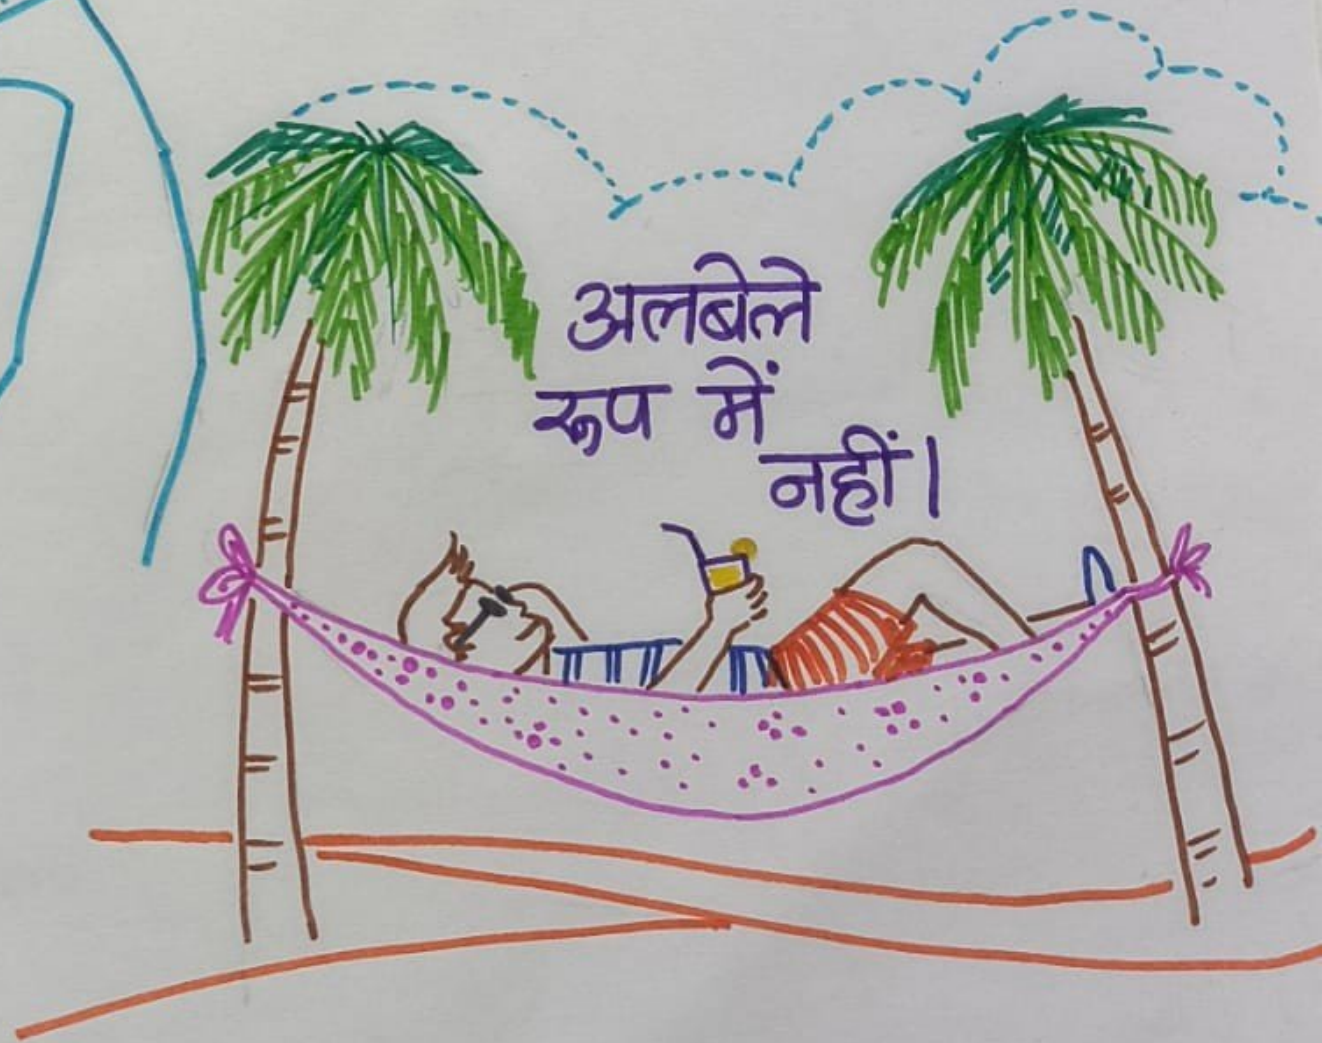 अलबेले
रूप में
नहीं।